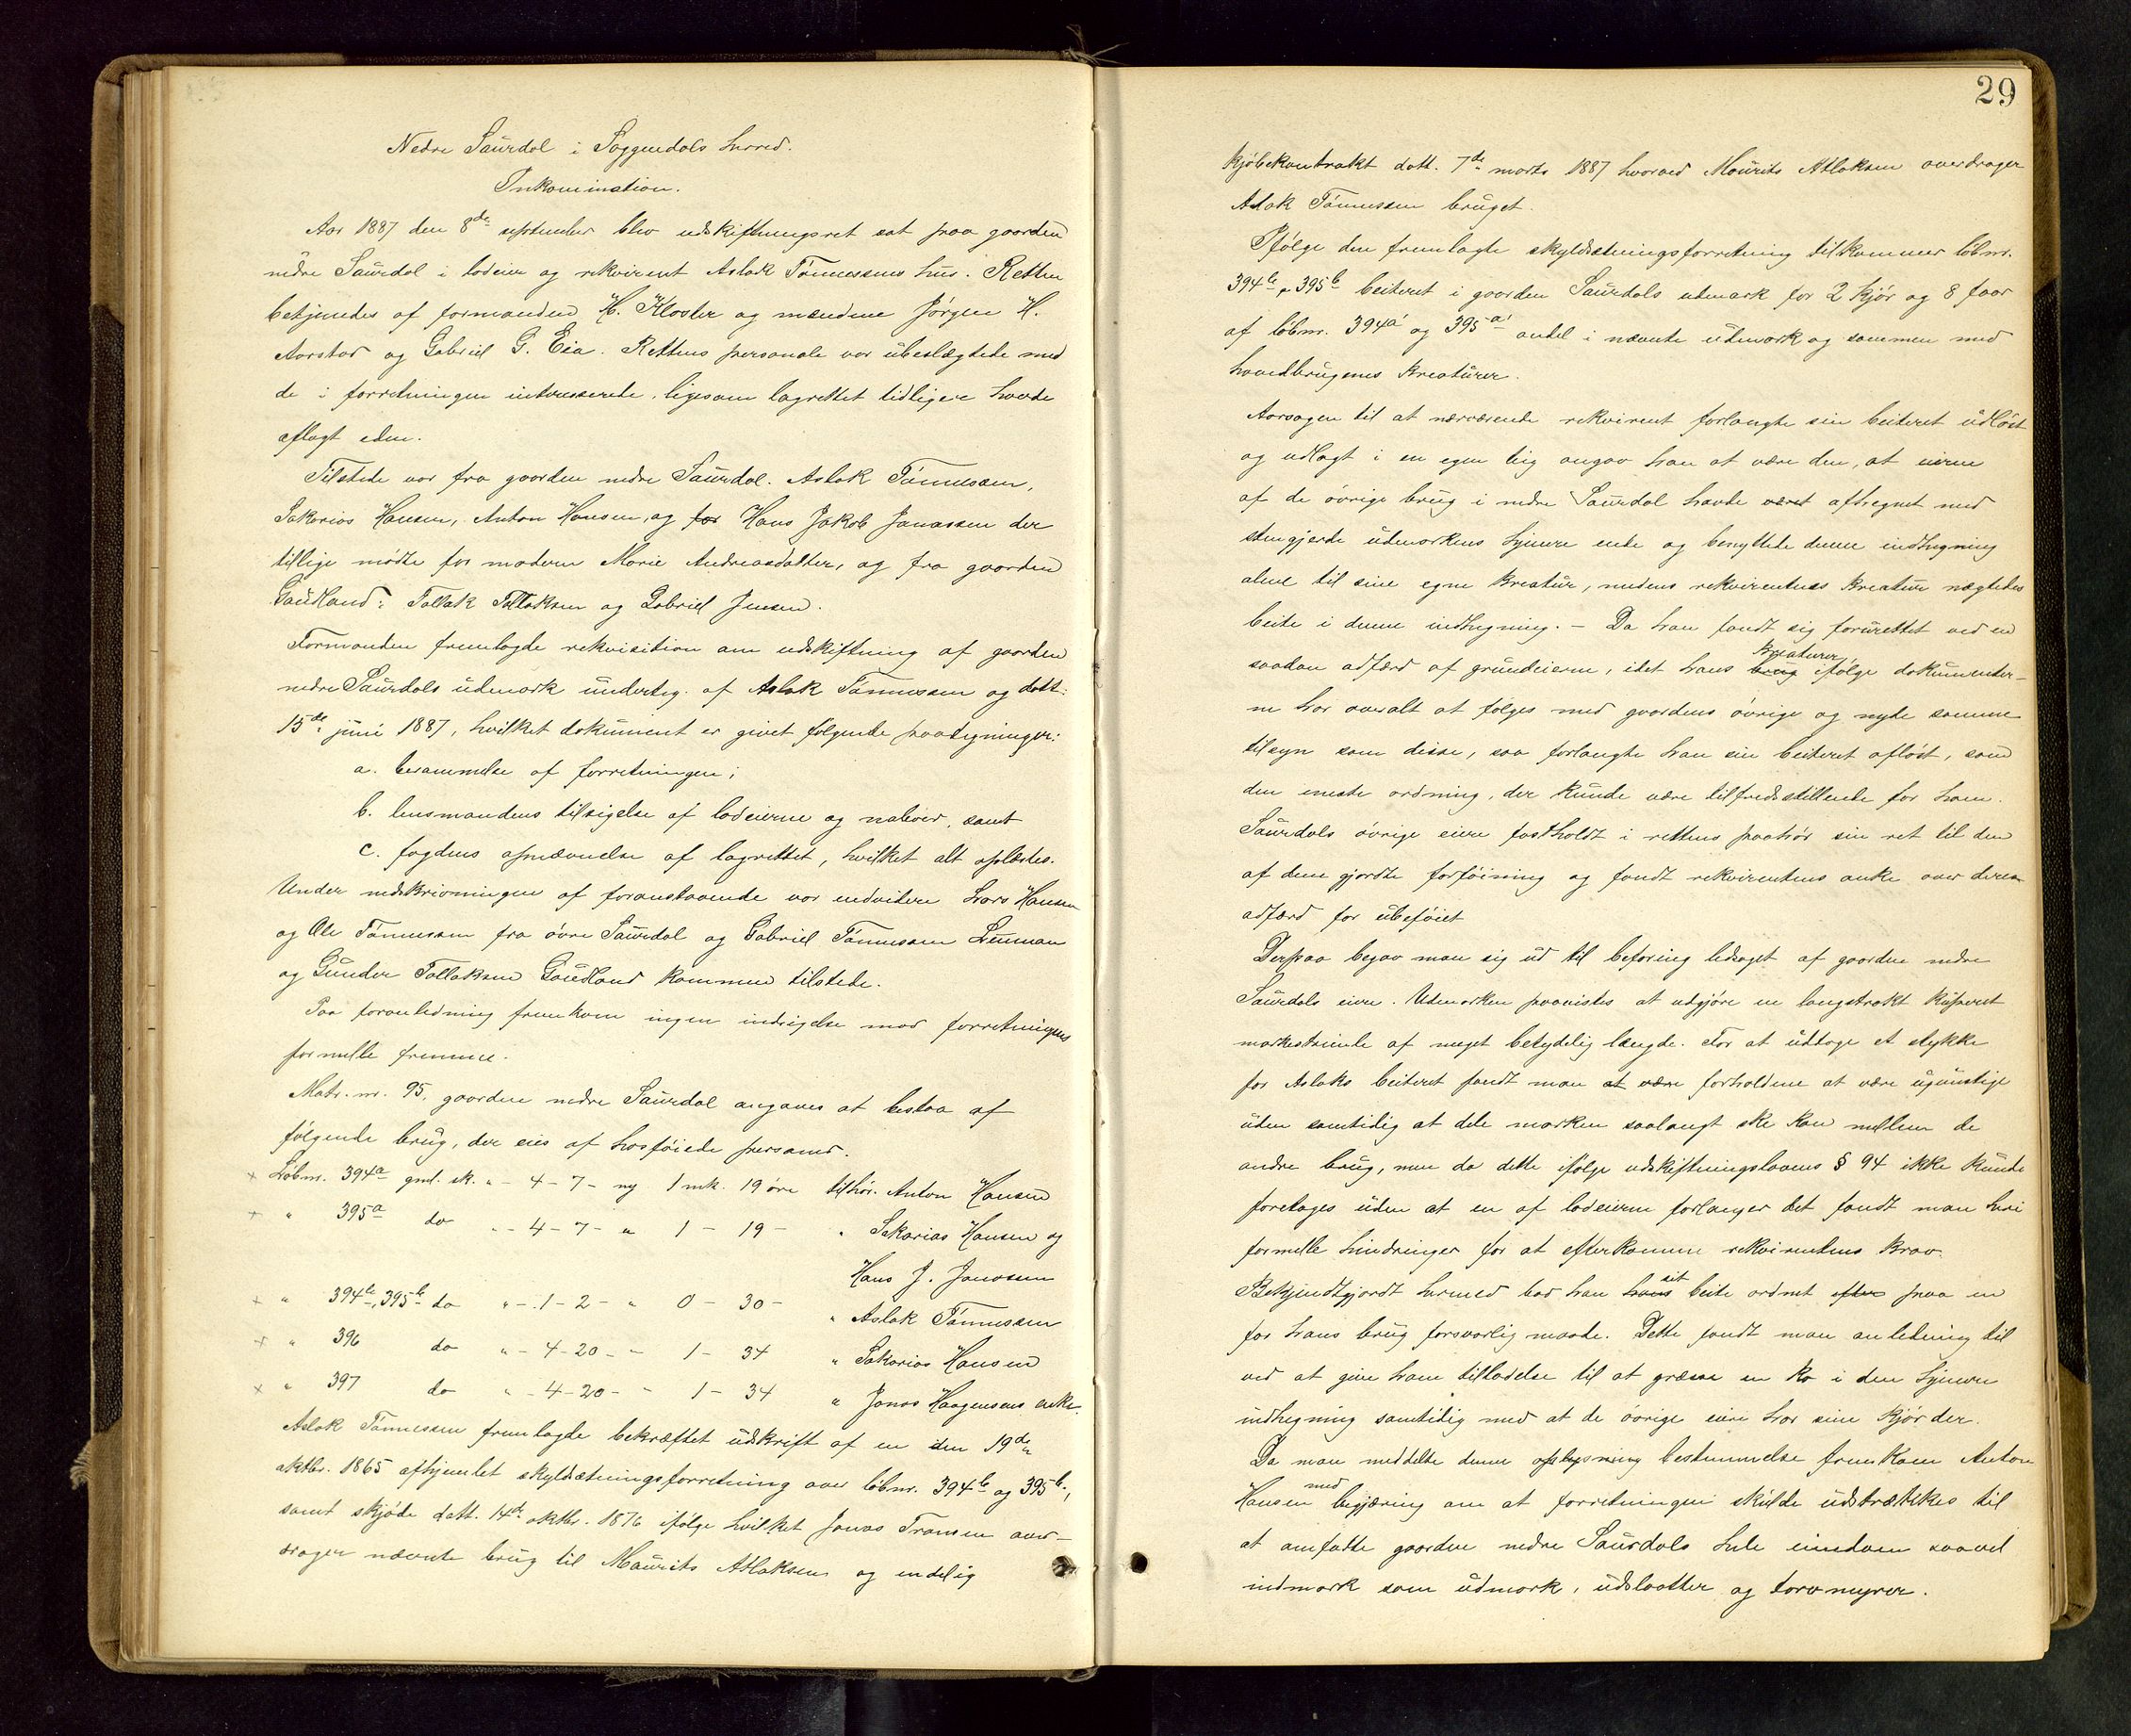 Nedre Saurdal i Soggendals herred.
Inkamination.
Aar 1887 den 8de september blev udskiftningsret sat paa gaarden
nedre Saurdal i lodeier og rekvirent Aslak Tønnessens hus. Retten
betjendes af formanden H. Kloster og mændene Jørgen H.
Aarstad og Gabriel G. Eia. Rettens personale var ubeslægtede med
de i forretningen interesserede, ligesom lagrettet tidligere havde
aflagt eden.
Tilstede var fra gaarden nedre Saurdal. Aslak Tønnessen,
Sakarias Hansen, Anton Hansen, og for Hans Jakob Janassen der
tillige mødte for moderen Marie Andreasdatter, og fra gaarden
Gaudland: Tollak Tollaksen og Gabriel Jensen.
Formanden fremlagde rekvisition om udskiftning af gaarden
nedre Saurdals udmark underteg. af Aslak Tønnessen og datt:
15de juni 1887, hvilket dokument er givet følgende paategninger:
a. berammelse af forretningen;
b. lensmandens tilsigelse af lodeierne og naboer, samt
c. fogdens opnævnelse af lagrettet, hvilket alt oplæstes.
Under nedskrivningen af foranstaaende var endvidere Lars Hansen
og Ole Tønnessen fra øvre Saurdal og Gabriel Tønnessen
og Gunder Tollaksen Gaudland kommen tilstede.
Paa foranledning fremkom ingen indsigelse mod forretningens
formelle fremme.
Matr. nr. 95, gaarden nedre Saurdal angaves at bestaa af
følgende brug, der eies af hosføiede personer.
+ Løbnr. 394a gml. sk. " - 4 - 7 - ny 1 mk. 19 øre tilhør. Anton Hansen
+ " 395a do " - 4 - 7 - " 1 - 19 - " Sakarias Hansen og
Hans J. Janassen
+ " 394b, 395b do " - 1 - 2 - " 0 - 30 - " Aslak Tønnessen
+ " 396 do " - 4 - 20 - " 1 - 34 " Sakarias Hansen
+ " 397 do " - 4 - 20 - " 1 - 34 " Jonas Haagensens enke.
Aslak Tønnessen fremlagde bekræftet udskrift af en den 19de
oktbr. 1865 afhjemlet skyldsætningsforretning over løbnr. 394b og 395b,
samt skjøde datt. 14de oktbr. 1876 ifølge hvilket Jonas Transen over-
drager nævnte brug til Maurits Atlaksen og endelig
29
kjøbekontrakt datt. 7de marts 1887 hvorved Maurits Atlaksen overdrager
Aslak Tønnessen bruget.
Ifølge den fremlagte skyldsætningsforretning tilkommer løbnr.
394b, 395b beiteret i gaarden Saurdals udmark for 2 kjør og 8 faar
af løbnr. 394a og 395a andel i nævnte udmark og sammen med
hovedbrugenes kreaturer.
Aarsagen til at nærværende rekvirent forlangte sin beiteret udløst
og udlagt i en egen teig angav han at være den, at eierne
af de øvrige brug i nedre Saurdal havde været afhegnet med
stengjerde udmarkens hjemre ende og benyttede denne indhegning
alene til sine egne kreatur, medens rekvirentens kreatur nægtedes
beite i denne indhegning. - Da han fandt sig forurettet ved en
saadan adfærd af grundeierne, idet hans brug kreaturer ifølge dokumenter-
ne har overalt at følges med gaardens øvrige og nyde samme
tilsyn som disse, saa forlangte han sin beiteret afløst, som
den eneste ordning, der kunde være tilfredsstillende for ham.
Saurdals øvrige eiere fastholdt i rettens paahør sin ret til den
af dem gjordte forføining og fandt rekvirentens anke over deres
adfærd for ubeføiet
Derpaa begav man sig ud til befaring ledsaget af gaarden nedre
Saurdals eiere. Udmarken paavistes at udgjøre en langstrakt kuperet
markestrimle af meget betydelig længde. For at udtage et stykke
for Aslaks beiteret fandt man at være forholdene at være ugunstige
uden samtidig at dele marken saalangt ske kan mellem de
andre brug, men da dette ifølge udskiftningslovens § 94 ikke kunde
foretages uden at en af lodeierne forlanger det fandt man heri
formelle hindringer for at efterkomme rekvirentens krav.
Bekjendtgjordt hermed bad han hans sit beite ordnet efter paa en
for hans brug forsvarlig maade. Dette fandt man anledning til
ved at give ham tilladelse til at græsse en ko i den hjemre
indhegning samtidig med at de øvrige eiere har sine kjør der.
Da man meddelte denne oplysning bestemmelse fremkom Anton
Hansen med begjæring om at forretningen skulde udstrækkes til
at omfatte gaarden nedre Saurdals hele eiendom saavel
indmark som udmark, udslaatter og torvmyrer.